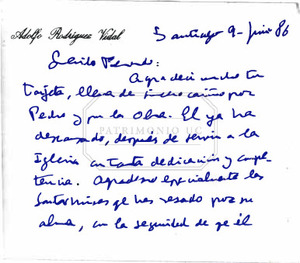 Adolfo Rodríguez Vidal
Santiago 9-Junio 86
Querido Fernando:
Agradecí mucho tu
tarjeta, llena de tanto cariño por
Pedro y por la Obra. El ya ha
descansado, después de servir a la
PATRIMONIO UC
Iglesia con tanta dedicación y compe-
tencia. Agradezco especialmente las
Santas Misas qe has rezado por su
alma, con la seguridad de qe él